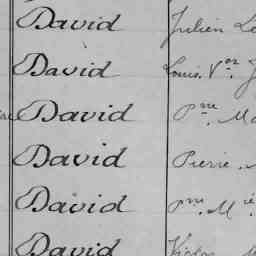 David Julien Le
David Louis. Vor. J
David Pme. Ma
David Pierre.
David Pme. Mie.
David Victor